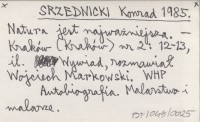 SRZEDNICKI Konrad 1985.
Natura jest najważniejsza. –
Kraków (Kraków) nr 2: 12-13,
il. Wywiad, rozmawiał
Wojciech Markowski. WHP
Autobiografia. Malarstwo i
malarze.